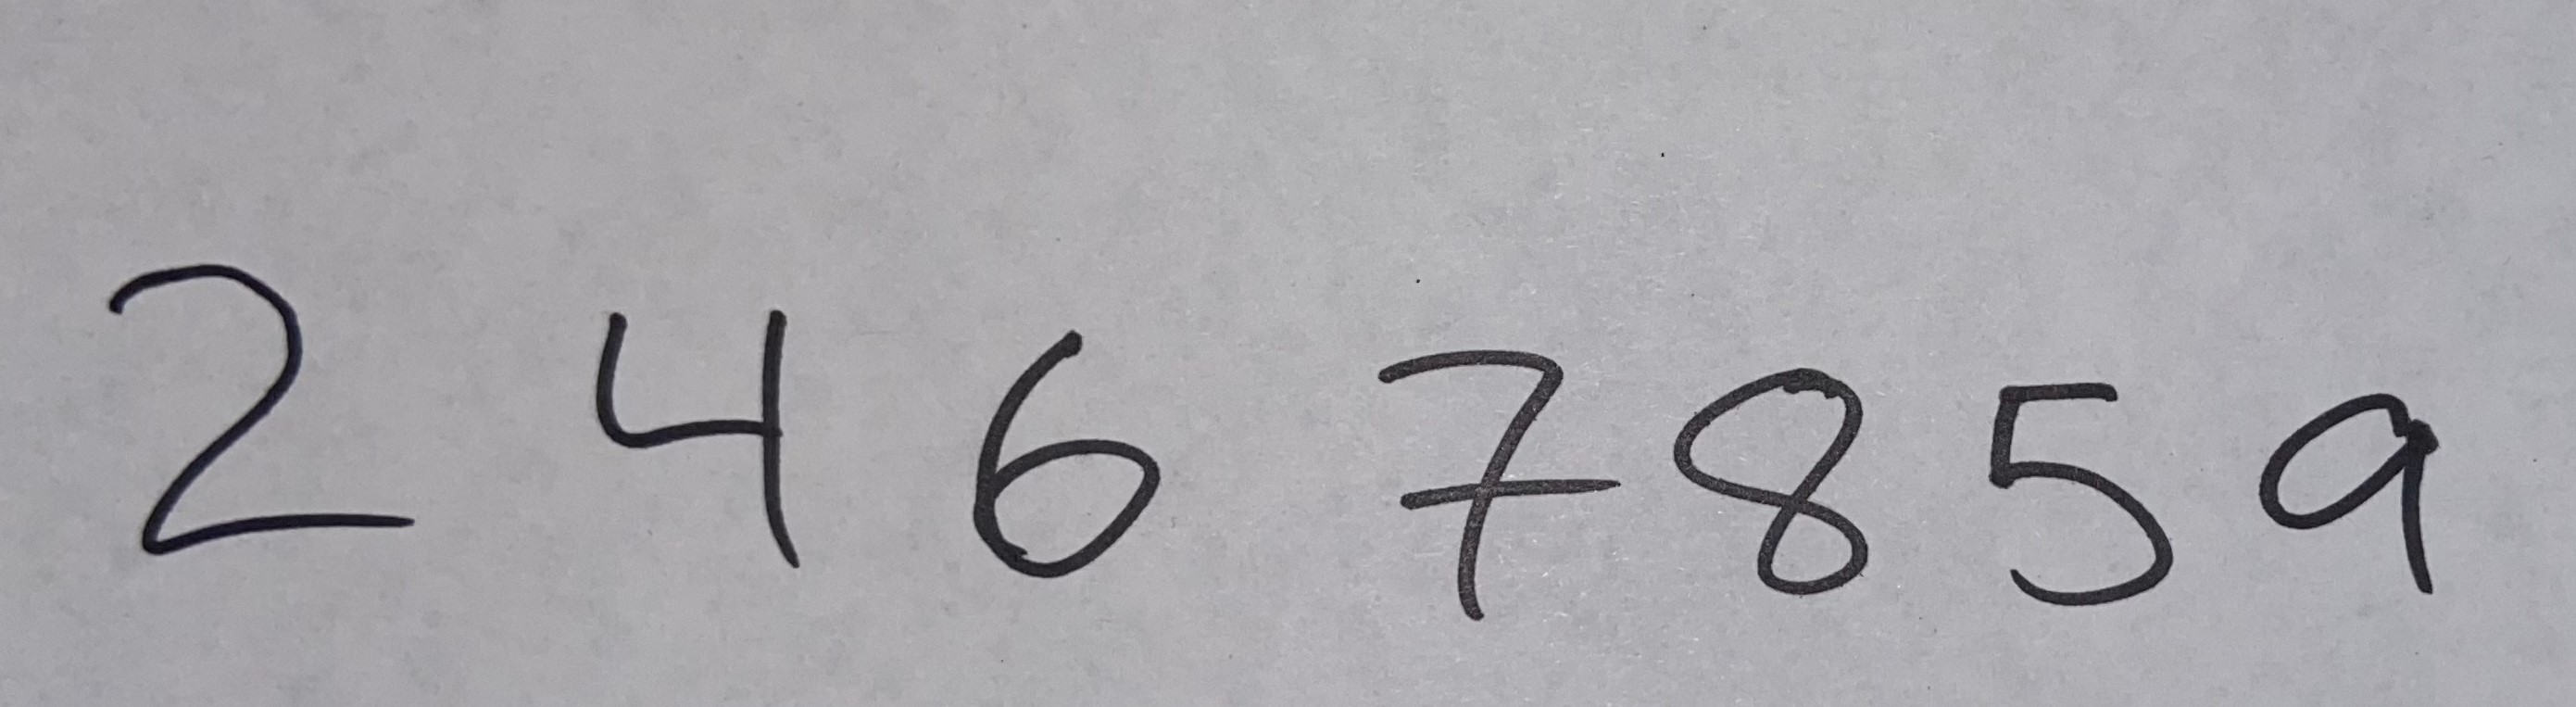 2 4 6 7 8 5 9